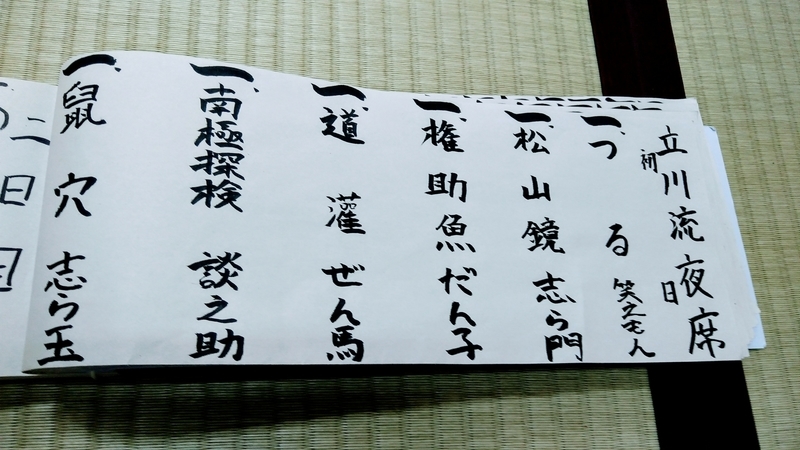 立川流夜席
初日
一、つる 笑えもん
一、松山鏡 志ら門
一、権助魚 だん子
一、道灌 ぜん馬
一、南極探検 談之助
一、鼠穴 志ら玉
二日目